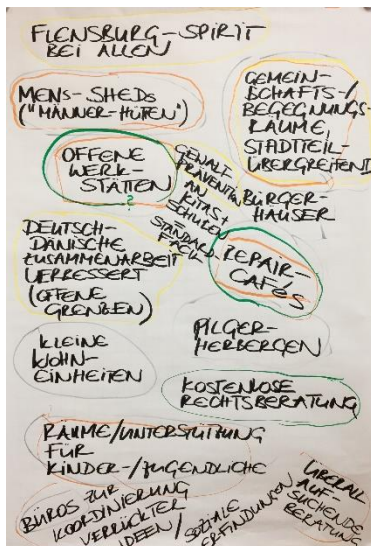 FLENSBURG-SPIRIT
BEI ALLEN
MENS-SHEDS
("MÄNNER-HÜTTEN")
GEMEIN-
SCHAFTS-/
BEGEGNUNGS-
RÄUME,
STADTTEIL-
ÜBERGREIFEND
OFFENE
WERK-
STÄTTEN
?
GEWALT-
PRÄVENTION
AN
KITAS+
SCHULEN
STANDARD-
FACH
BÜRGER-
HÄUSER
DEUTSCH-
DÄNISCHE
ZUSAMMENARBEIT
VERBESSERT
(OFFENE
GRENZEN)
REPAIR-
CAFÉS
KLEINE
WOHN-
EINHEITEN
PILGER-
HERBERGEN
KOSTENLOSE
RECHTSBERATUNG
RÄUME/UNTERSTÜTZUNG
FÜR
KINDER-/JUGENDLICHE
BÜROS ZUR
KOORDINIERUNG
VERRÜCKTER
IDEEN/
SOZIALE
ERFINDUNGEN
ÜBERALL
AUF-
SUCHENDE
BERATUNG